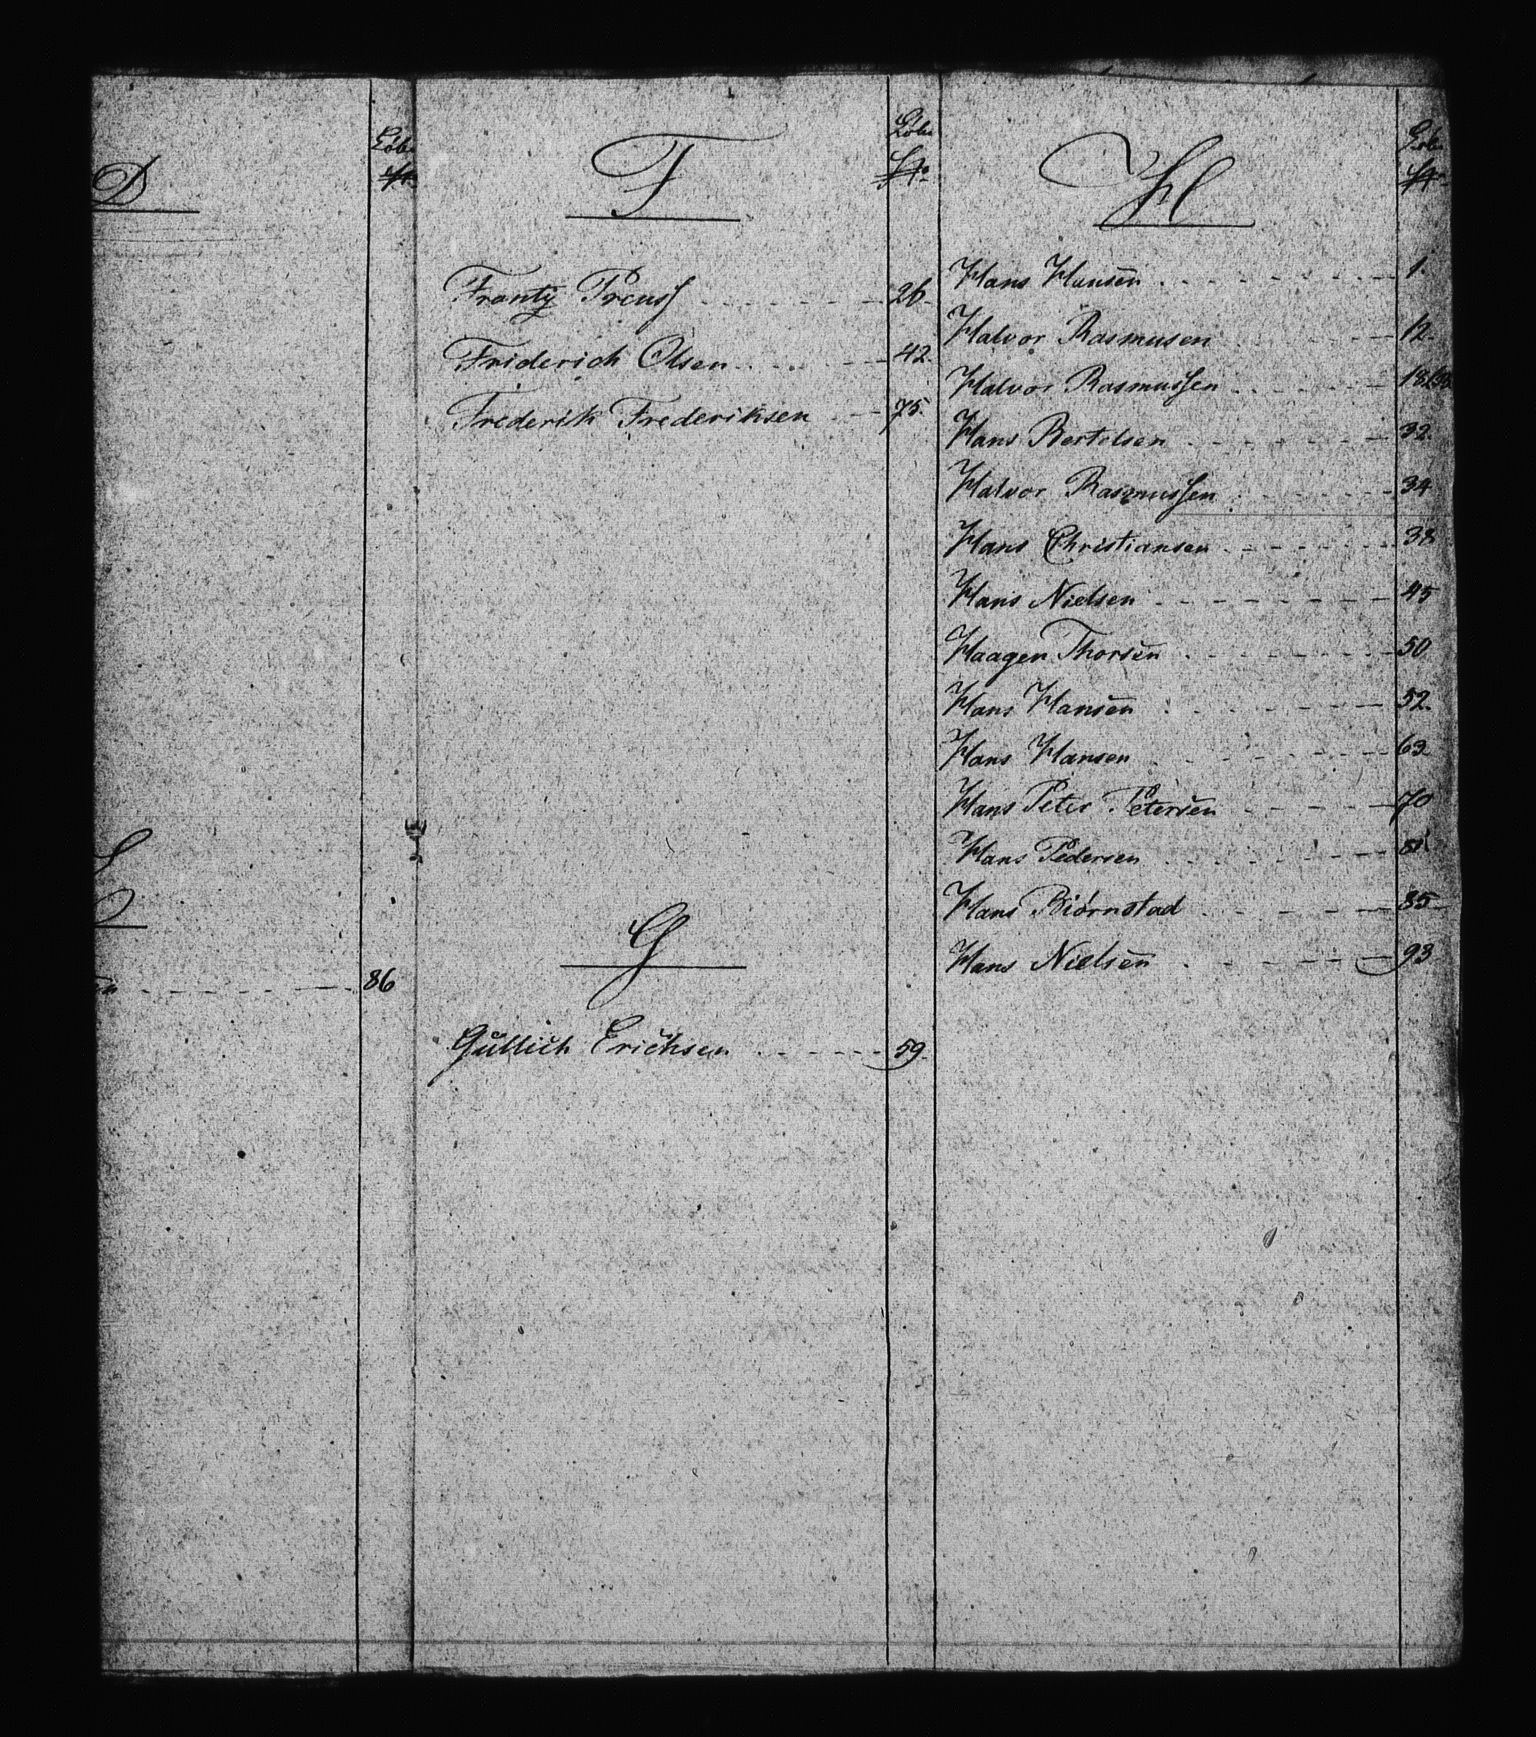 D
Løb.
No.
86
F
Løb.
No.
Frantz Preuss 26.
Friderich Olsen 42.
Frederik Frederiksen 75.
G
Gullich Erichsen 59.
H
Løb.
No.
Hans Hansen 1.
Halvor Rasmusen 12.
Halvor Rasmussen 18
Hans Bertelsen 32.
Halvor Rasmussen 34
Hans Christiansen 38
Hans Nielsen 45
Haagen Thorsen 50
Hans Hansen 52.
Hans Hansen 63
Hans Peter Petersen 70
Hans Pedersen
Hans Biørnstad 85
Hans Nielsen 93